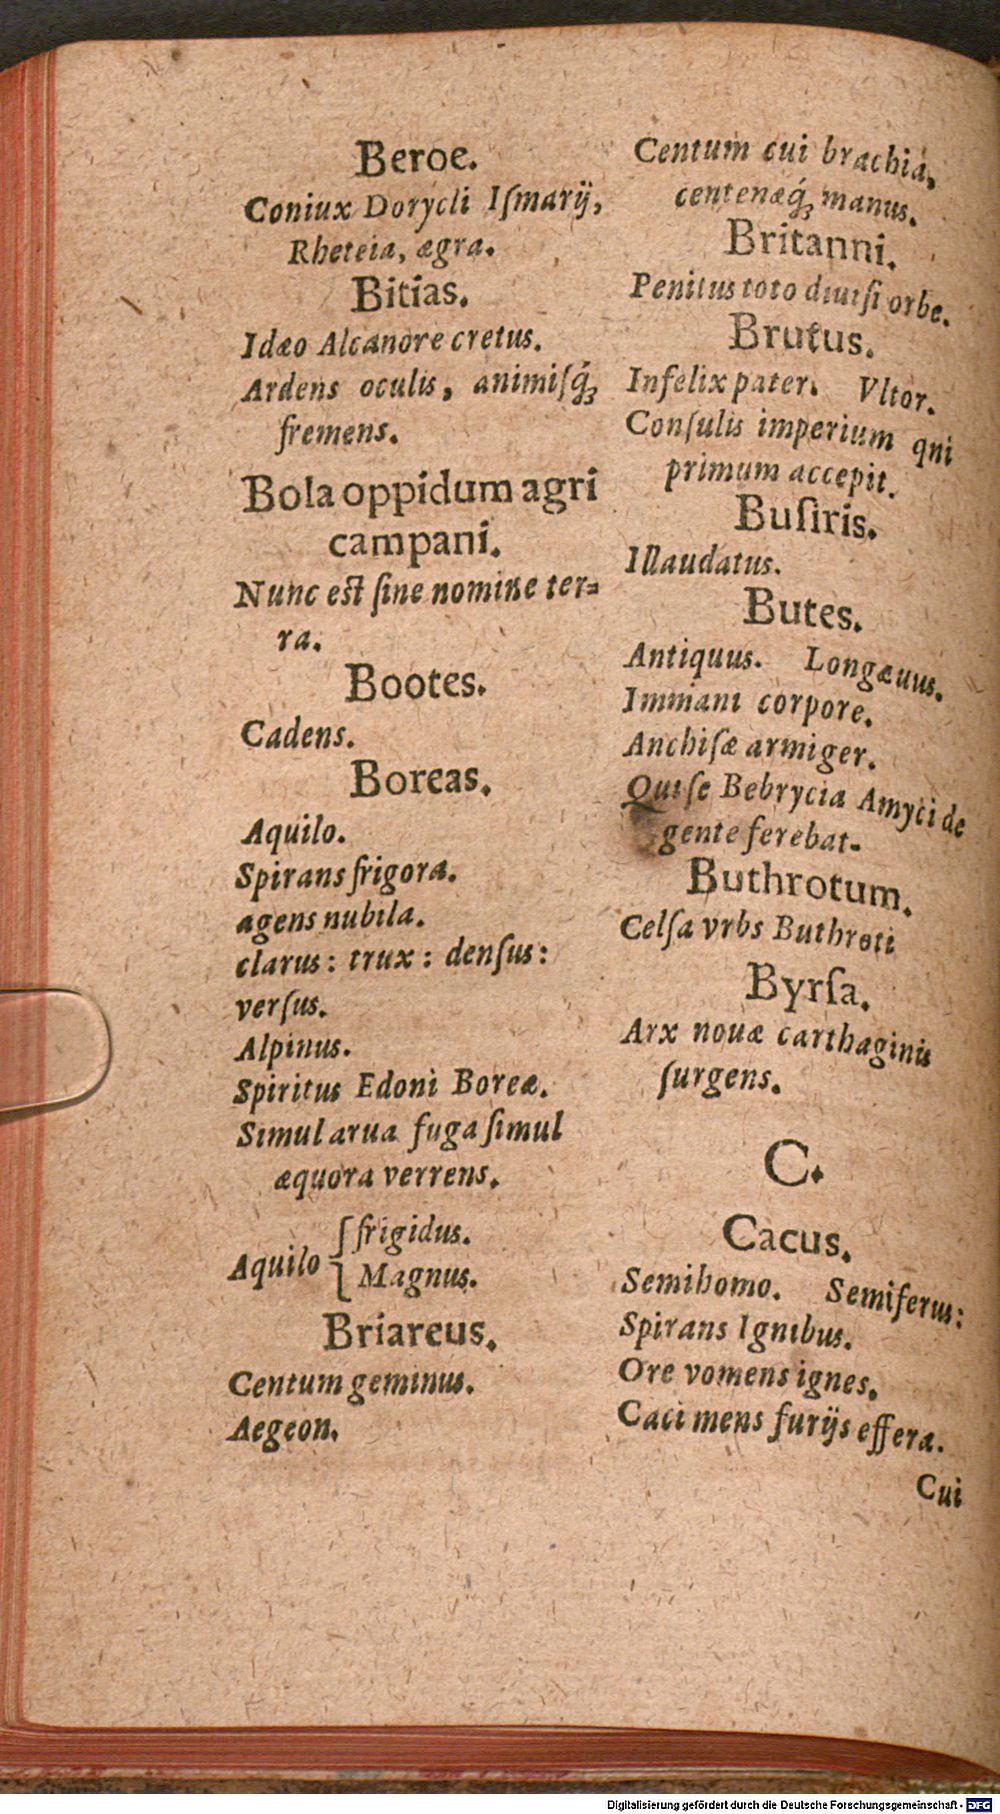 Beroe.
Coniux Dorycli Iſmarij,
Rheteia, ægra.
Bitias.
Idæo Alcanore cretus.
Ardens oculis, animiſq́;
fremens.
Bola oppidum agri
campani.
Nunc est ſine nomine ter-
ra.
Bootes.
Cadens.
Boreas.
Aquilo.
Spirans frigora.
agens nubila.
clarus: trux: denſus:
verſus.
Alpinus.
Spiritus Edoni Boreæ.
Simul arua fuga ſimul
æquora verrens.
Aquilo { frigidus.
Magnus.
Briareus.
Centum geminus.
Aegeon.
Centum cui brachia,
centenæq́; manus.
Britanni.
Penitus toto diuiſi orbe.
Brutus.
Infelix pater. Vltor.
Conſulis imperium qni
primum accepit.
Buſiris.
Illaudatus.
Butes.
Antiquus. Longæuus.
Immani corpore.
Anchiſæ armiger.
Qui ſe Bebrycia Amyci de
gente ferebat.
Buthrotum.
Celſa vrbs Buthroti
Byrſa.
Arx nouæ carthaginis
ſurgens.
C.
Cacus.
Semihomo. Semiferus:
Spirans Ignibus.
Ore vomens ignes.
Caci mens furijs effera.
Cui
Digitalisierung gefördert durch die Deutsche Forschungsgemeinschaft - DFG